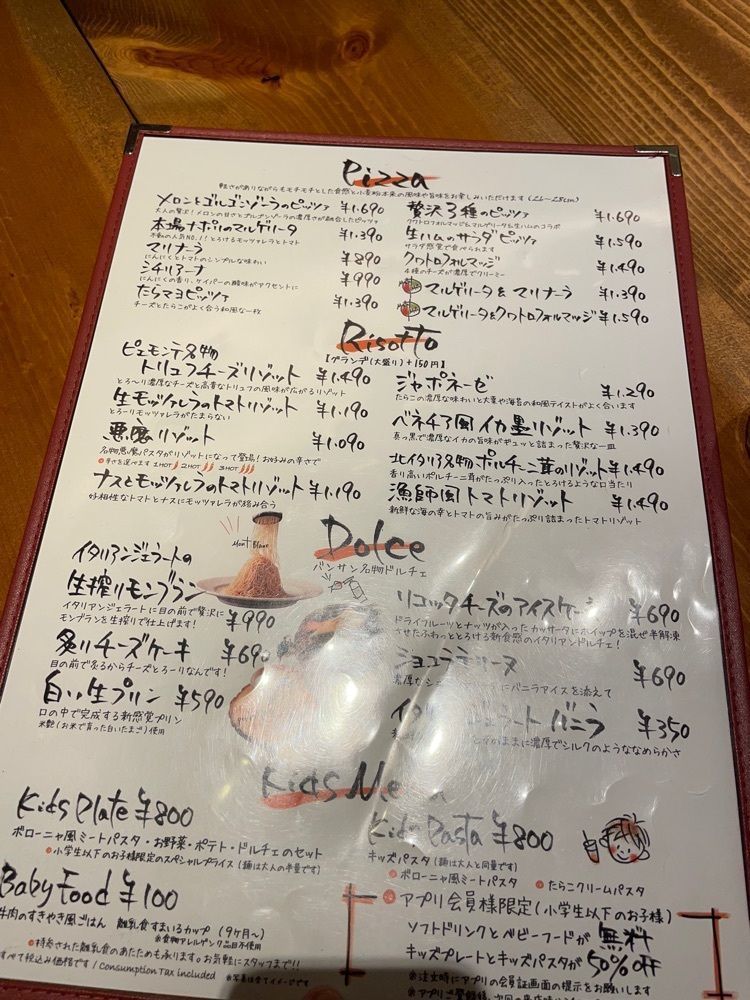 Pizza
軽さがありながらもモチモチとした食感と小麦粉本来の風味や旨味をお楽しみいただけます (26~28cm)
メロンとゴルゴンゾーラのピッツァ ¥1.690
大人の贅沢!メロンの甘さとゴルゴンゾーラの濃厚さが融合したピッツァ
本場ナポリのマルゲリータ ¥1.390
不動の人気NO.1!とろけるモッツァレラとトマト
マリナーラ ¥890
にんにくとトマトのシンプルな味わい
シチリアーナ ¥990
にんにくの香り、ケイパーの酸味がアクセントに
たらマヨピッツァ ¥1.390
チーズとたらこがよく合う和風な一枚
贅沢3種のピッツァ ¥1.690
クワトロフォルマッジ&マルゲリータ&生ハムのコラボ
生ハムのサラダピッツァ ¥1.590
サラダ感覚で食べられます
クワトロフォルマッジ ¥1.490
4種のチーズが濃厚でクリーミー
マルゲリータ & マリナーラ ¥1.390
マルゲリータ&クワトロフォルマッジ ¥1.590
Risotto
【グランデ(大盛り)+150円】
ピエモンテ名物
トリュフチーズリゾット ¥1.490
とろ~り濃厚なチーズと高貴なトリュフの風味が広がるリゾット
生モッツァレラのトマトリゾット ¥1.190
とろーりモッツァレラがたまらない
悪魔リゾット ¥1.090
名物悪魔パスタがリゾットになって登場!お好みの辛さで
辛さを選べます 1HOT 2HOT 3HOT
ナスとモッツァレラのトマトリゾット ¥1.190
好相性なトマトとナスにモッツァレラが絡み合う
ジャポネーゼ ¥1.290
たらこの濃厚な味わいと大葉や海苔の和風テイストがよく合います
ベネチア風イカ墨リゾット ¥1.390
真っ黒で濃厚なイカの旨味がギュッと詰まった贅沢な一皿
北イタリア名物ポルチーニ茸のリゾット ¥1.490
香り高いポルチーニ茸がたっぷり入ったとろけるような口当たり
漁師風トマトリゾット ¥1.490
新鮮な海の幸とトマトの旨みがたっぷり詰まったトマトリゾット
Dolce
バンサン名物ドルチェ
Mont Blanc
イタリアンジェラートの
生搾りモンブラン
イタリアンジェラートに目の前で贅沢に
モンブランを生搾りで仕上げます! ¥990
炙りチーズケーキ ¥690
目の前で炙るからチーズとろーりなんです!
白い生プリン ¥590
口の中で完成する新感覚プリン
米艶(お米で育った白いたまご)使用
リコッタチーズのアイスケー ¥690
ドライフルーツとナッツが入ったカッサータにホイップを混ぜ半解凍
させたふわっととろける新食感のイタリアンドルチェ!
ジョコラテリーヌ ¥690
濃厚な にバニラアイスを添えて
イタ ェラート バニラ ¥350
ままに濃厚でシルクのようななめらかさ
Kids Me
Kids Plate ¥800
ボローニャ風ミートパスタ・お野菜・ポテト・ドルチェのセット
小学生以下のお子様限定のスペシャルプライス(麺は大人の半量です)
Baby Food ¥100
牛肉のすきやき風ごはん 離乳食すまいるカップ (9ヶ月~)
※食物アレルゲン 品目不使用
持参された離乳食のあたためも承ります。お気軽にスタッフまで!!
すべて税込み価格です / Consumption Tax included ※写真は全てイメージです
Kids Pasta ¥800
キッズパスタ (麺は大人と同量です)
ボローニャ風ミートパスタ たらこクリームパスタ
アプリ会員様限定(小学生以下のお子様)
ソフトドリンクとベビーフードが 無料
キッズプレートとキッズパスタが 50%OFF
※注文時にアプリの会員証画面の提示をお願いします